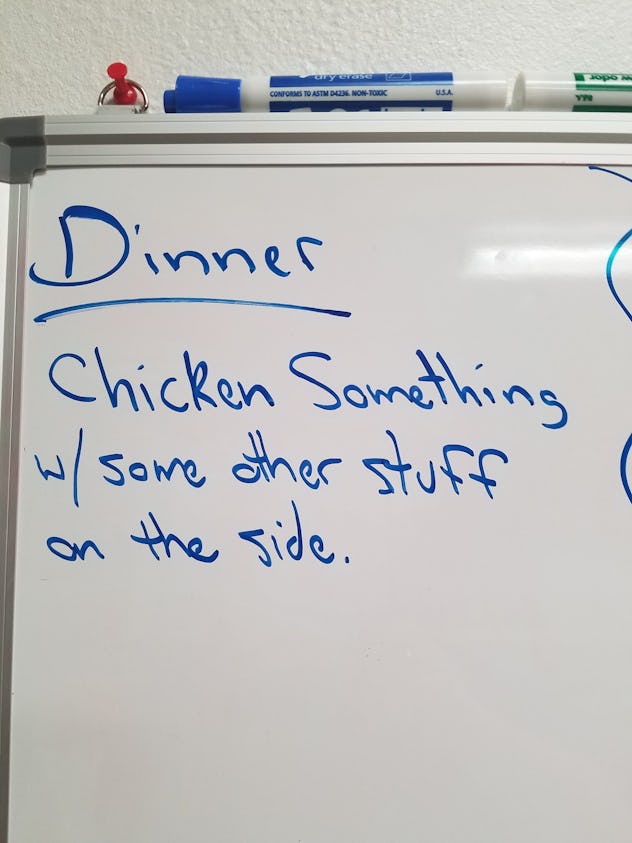 dry erase
CONFORMS TO ASTM D4236. NON-TOXIC
U.S.A.
w odor
Dinner
Chicken Something
w/ some other stuff
on the side.